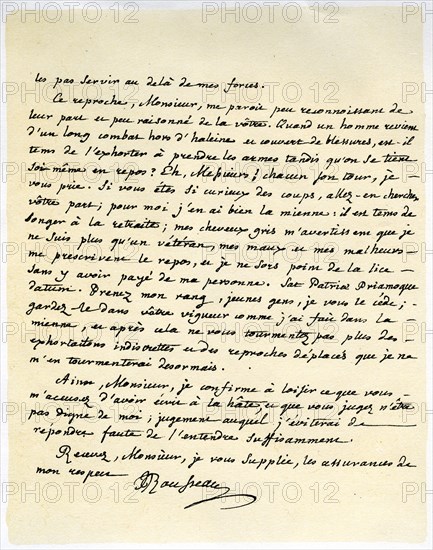 les pas servir au delà de mes forces.
Ce reproche, Monsieur, me paroit peu reconnoissant de
leur part et peu raisonné de la vôtre. Quand un homme revient
d'un long combat hors d'haleine et couvert de blessures, est-il
tems de l'exhorter à prendre les armes tandis qu'on se tient
soi-même en repos? Eh, Messieurs! chacun son tour, je
vous prie. Si vous êtes si curieux des coups, allez-en chercher
vôtre part; pour moi j'en ai bien la mienne: il est tems de
songer à la retraite; mes cheveux gris m'avertissent que je
ne suis plus qu'un vétéran, mes maux et mes malheurs
me prescrivent le repos, et je ne sors point de la lice
sans y avoir payé de ma personne. Sat Patriæ Priamoque
datum. Prenez mon rang, jeunes gens, je vous le cède;
gardez-le dans vôtre vigueur comme j'ai fait dans la
mienne, et après cela ne vous tourmentez pas plus des
exhortations indiscretes et des reproches déplacés que je ne
m'en tourmenterai desormais.
Ainsi, Monsieur, je confirme à loisir ce que vous
m'accusez d'avoir écrit à la hâte, et que vous jugez n'être
pas digne de moi; jugement auquel j'éviterai de
répondre faute de l'entendre suffisamment.
Recevez, Monsieur, je vous supplie, les assurances de
mon respect
JJRousseau
PHOTO 12